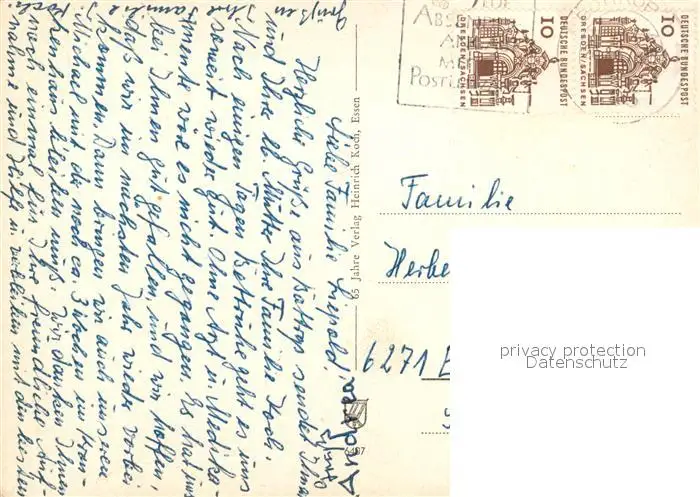 Liebe Familie Lippold.
Herzliche Grüße aus Bottrop sendet Ihnen
und Ihre lb. Mutter Ihre Familie Koch.
Nach einigen Tagen Bettruhe geht es uns
soweit wieder gut. Ohne Arzt u. Medika-
mente wäre es nicht gegangen. Es hat uns
bei Ihnen gut gefallen, und wir hoffen,
daß wir im nächsten Jahr wieder vorbei
kommen. Dann bringen wir auch unseren
Michael mit, da noch ca. 3 Wochen im Kran-
kenhaus bleiben muß. Wir danken Ihnen
noch einmal für Ihre freundliche Auf-
nahme und Hilfe u. verbleiben mit den besten
Grüßen
Ihre Familie
Koch.
Andrea
65 Jahre Verlag Heinrich Koch, Essen
6407
DEUTSCHE BUNDESPOST
10
DRESDEN/SACHSEN
DEUTSCHE BUNDESPOST
10
DRESDEN/SACHSEN
Familie
Herbe
6271
privacy protection
Datenschutz